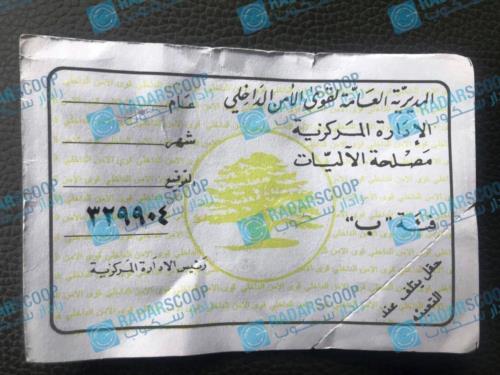 المديرية العامة لقوى الأمن الداخلي
الإدارة المركزية
مصلحة الآليات
فئة "ب"
عام
شهر
توقيع
٣٢٩٩٠٤
رئيس الادارة المركزية
حقل يتلف عند
التعبئة
RADARSCOOP
رادار سكوب